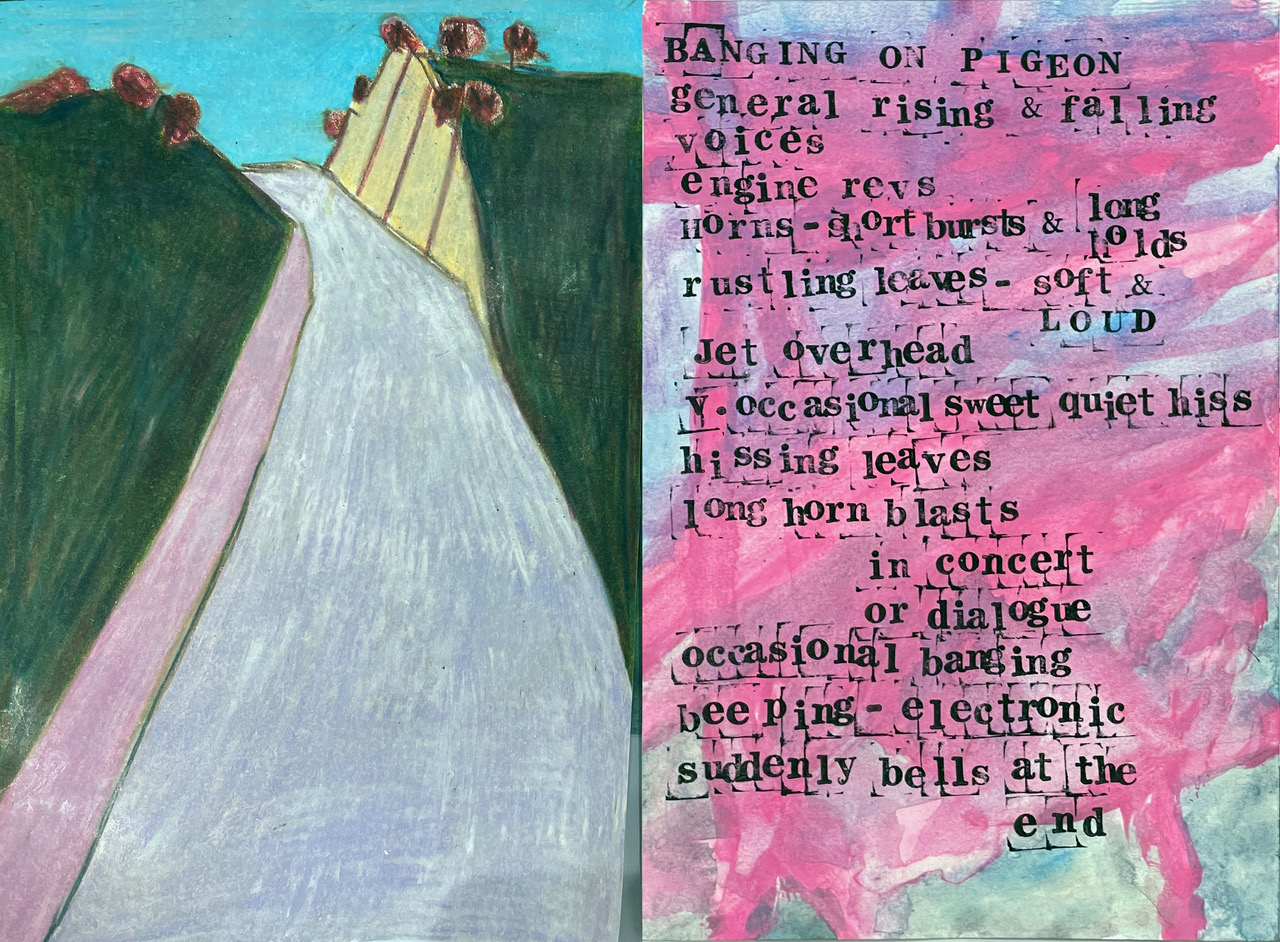 BANGING ON PIGEON
general rising & falling
voices
engine revs
Horns - short bursts & long
holds
rustling leaves - soft &
LOUD
Jet overhead
v. occasional sweet quiet hiss
hissing leaves
long horn blasts
in concert
or dialogue
occasional banging
beeping - electronic
suddenly bells at the
end